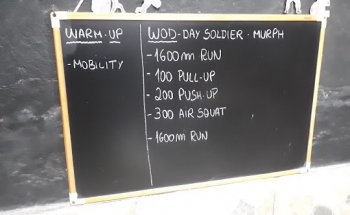 WARM-UP
-MOBILITY
WOD-DAY SOLDIER - MURPH
-1600m RUN
-100 PULL-UP
-200 PUSH-UP
-300 AIR SQUAT
-1600m RUN